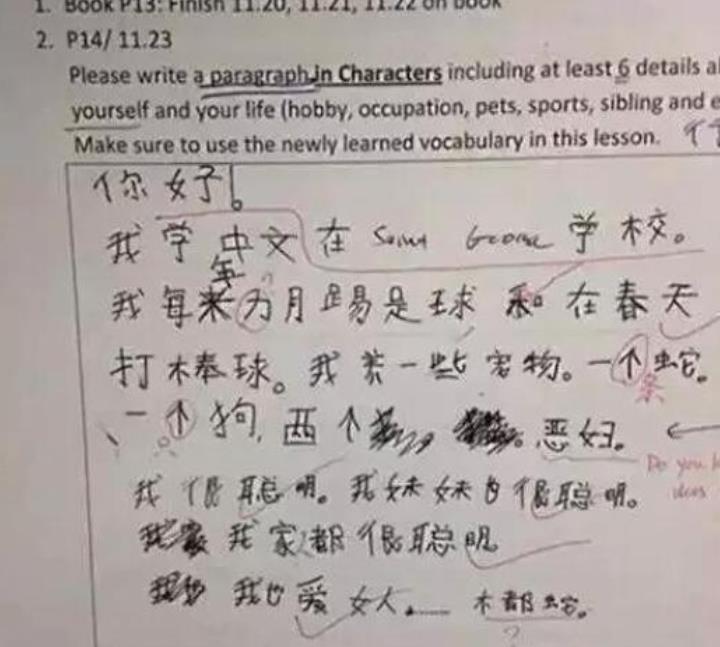 1. Book P13: Finish 11.20, 11.21, 11.22 on book
2. P14/ 11.23
Please write a paragraph in Characters including at least 6 details
yourself and your life (hobby, occupation, pets, sports, sibling and
Make sure to use the newly learned vocabulary in this lesson.
你好!
我学中文在 学校。
年
我每来为月踢足球和在春天
打棒球。我养一些宠物。一个蛇。
条
一个狗,两个 。恶妇。
Do you
我很聪明。我妹妹也很聪明。
我家都很聪明
我也爱女人。…… 木都蛇。
?